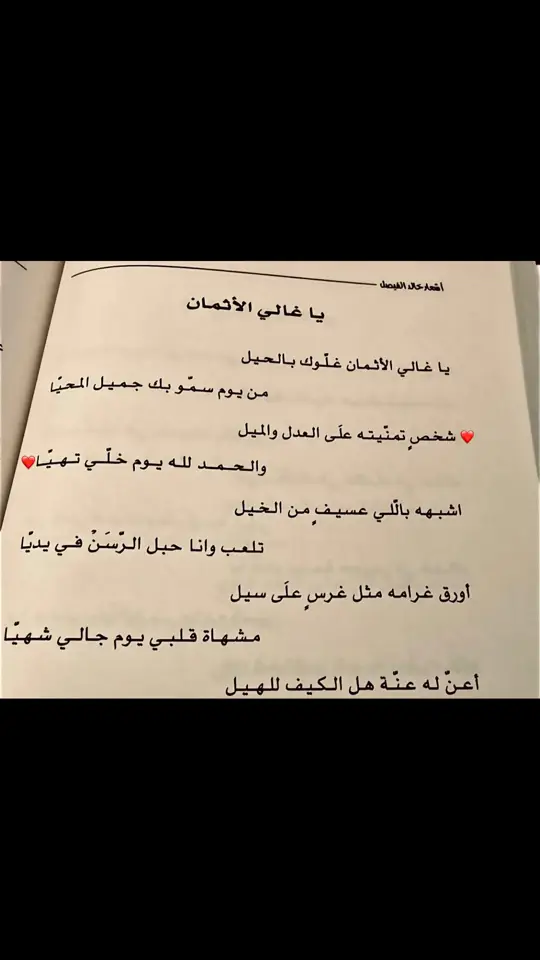 أشعار خالد الفيصل
يا غالي الأثمان
يا غالي الأثمان غلّوك بالحيل
من يوم سمّو بك جميل المحيّا
❤️ شخصٍ تمنّيته علَى العدل والميل
والحمد لله يوم خلّي تهيّا❤️
اشبهه باللّي عسيفٍ من الخيل
تلعب وانا حبل الرّسَنْ في يديّا
أورق غرامه مثل غرسٍ علَى سيل
مشهاة قلبي يوم جالي شهيّا
أعنّ له عنّة هل الكيف للهيل